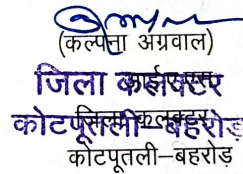 (कल्पना अग्रवाल)
जिला कलक्टर
कोटपूतली-बहरोड़
जिला कलक्टर
कोटपूतली-बहरोड़